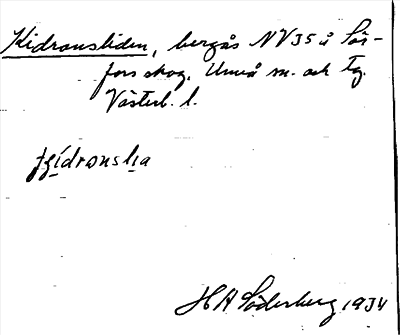 Kidronsliden, bergås NV35 å Sör-
fors skog, Umeå sn. och tg.
Västerb. l.
tjídronslia
H A Söderberg 1934